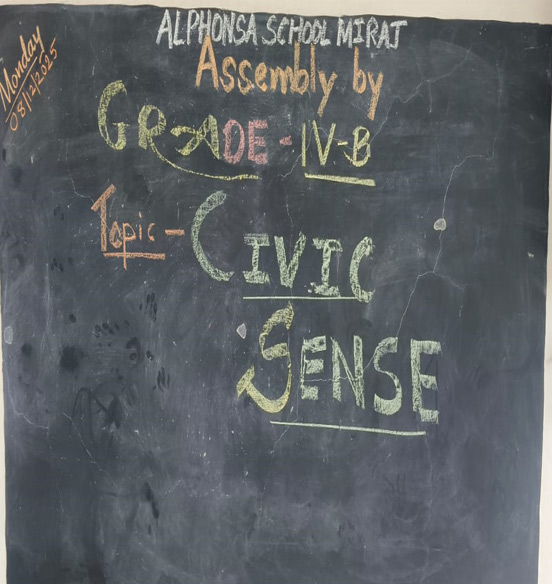 ALPHONSA SCHOOL MIRAJ
Monday
08/12/2025
Assembly by
GRADE - IV-B
Topic - CIVIC
SENSE